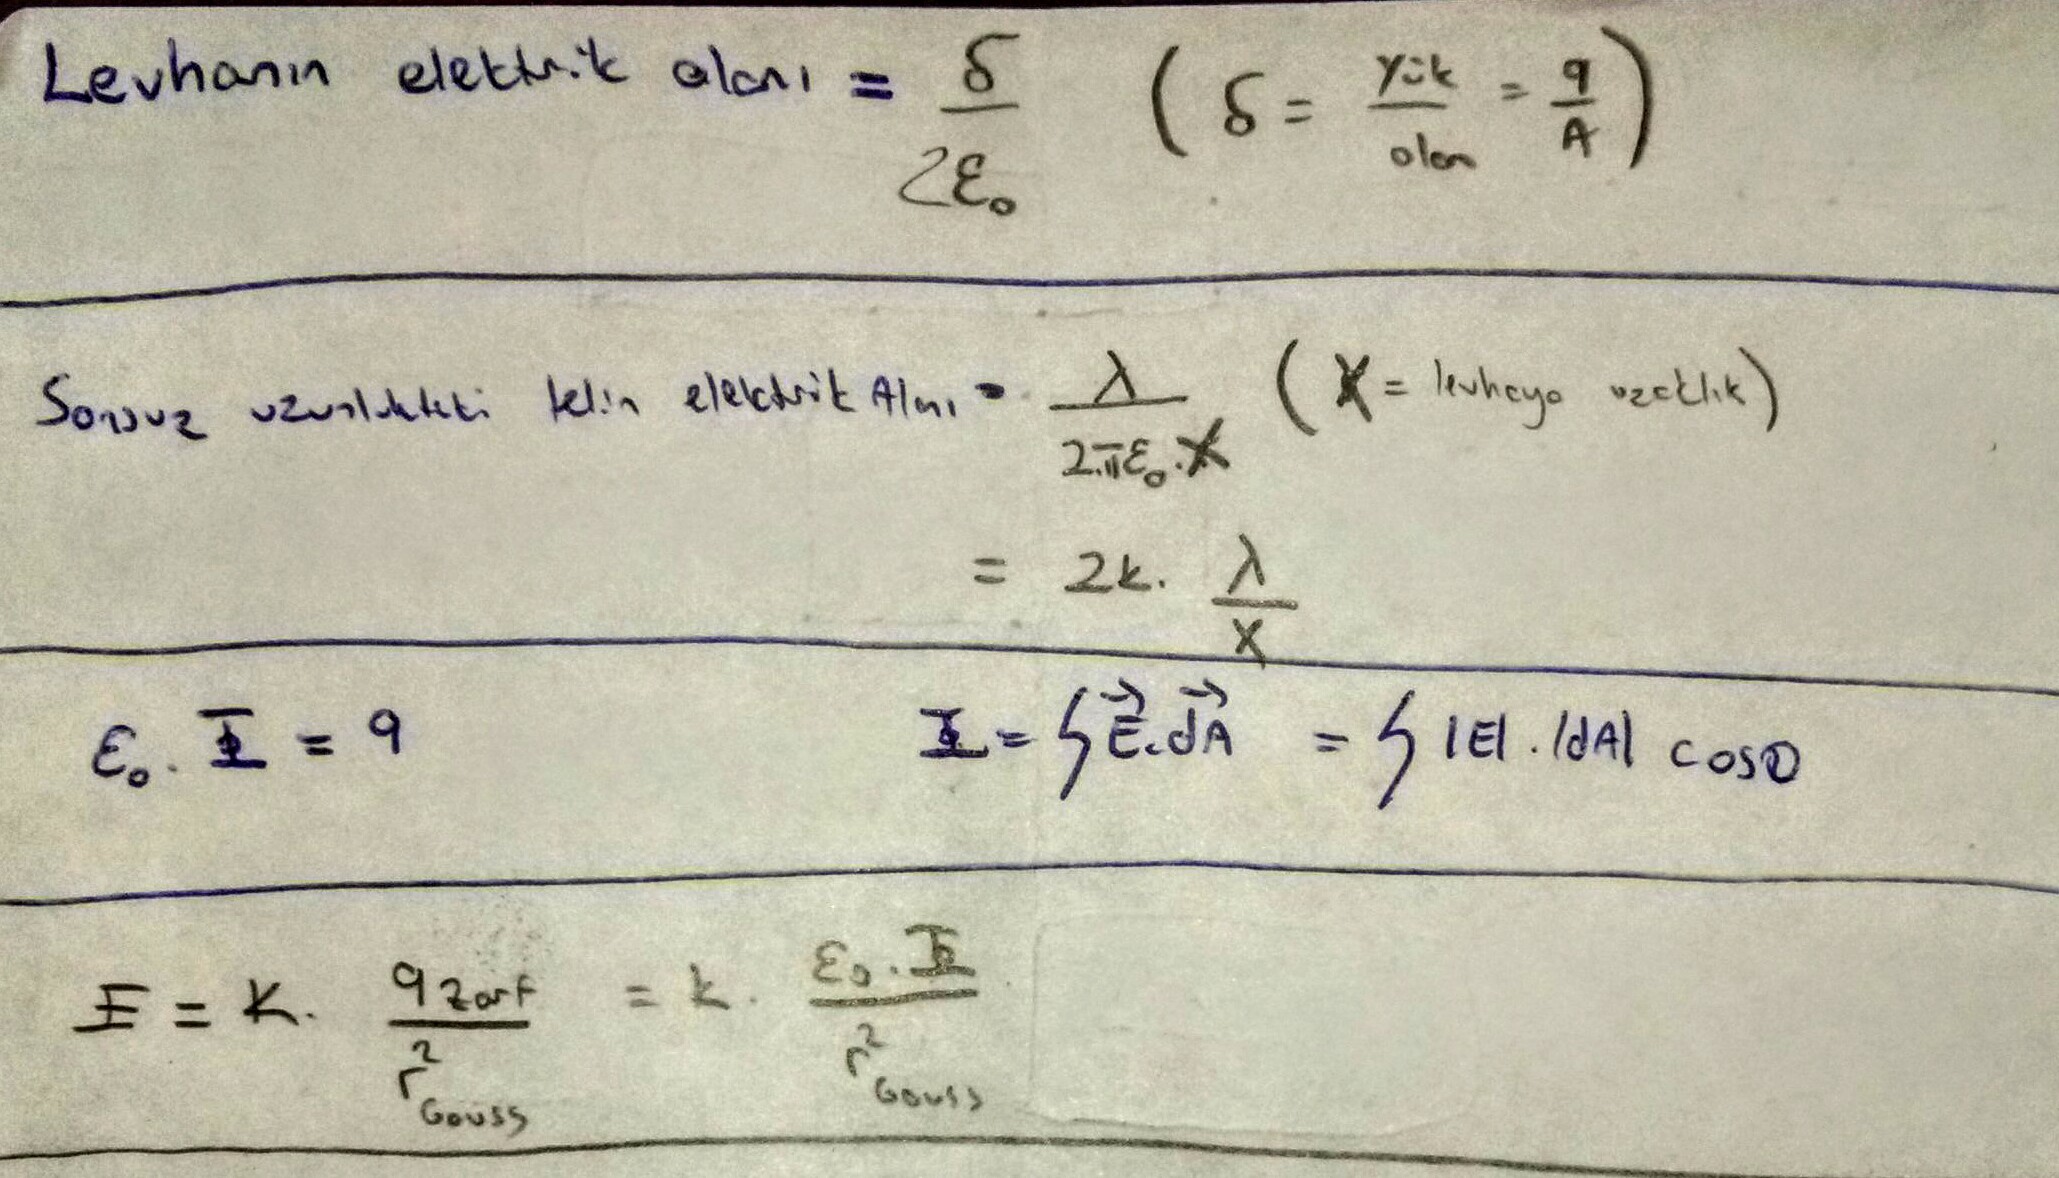 Levhanın elektrik alanı = δ / 2ε₀ ( δ = yük / alan = q / A )
Sonsuz uzunluktaki telin elektrik Alanı = λ / 2.πε₀.x ( x = levhaya uzaklık )
= 2k. λ / x
ε₀. Φ = q Φ = ∫ E⃗.dA⃗ = ∫ |E|.|dA| cosθ
E = K. q zarf / r² Gauss = k. ε₀.Φ / r² Gauss